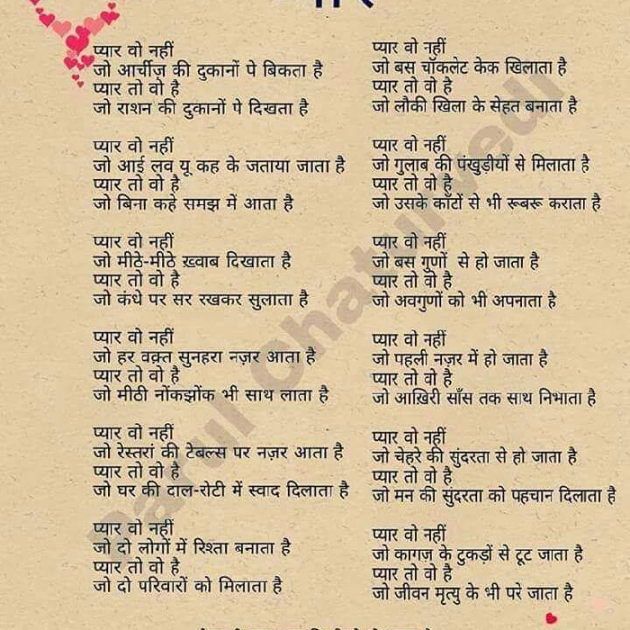 प्यार वो नहीं
जो आर्चीज़ की दुकानों पे बिकता है
प्यार तो वो है
जो राशन की दुकानों पे दिखता है
प्यार वो नहीं
जो आई लव यू कह के जताया जाता है
प्यार तो वो है
जो बिना कहे समझ में आता है
प्यार वो नहीं
जो मीठे-मीठे ख़्वाब दिखाता है
प्यार तो वो है
जो कंधे पर सर रखकर सुलाता है
प्यार वो नहीं
जो हर वक़्त सुनहरा नज़र आता है
प्यार तो वो है
जो मीठी नोंकझोंक भी साथ लाता है
प्यार वो नहीं
जो रेस्तरां की टेबल्स पर नज़र आता है
प्यार तो वो है
जो घर की दाल-रोटी में स्वाद दिलाता है
प्यार वो नहीं
जो दो लोगों में रिश्ता बनाता है
प्यार तो वो है
जो दो परिवारों को मिलाता है
प्यार वो नहीं
जो बस चॉकलेट केक खिलाता है
प्यार तो वो है
जो लौकी खिला के सेहत बनाता है
प्यार वो नहीं
जो गुलाब की पंखुड़ीयों से मिलाता है
प्यार तो वो है
जो उसके काँटों से भी रूबरू कराता है
प्यार वो नहीं
जो बस गुणों से हो जाता है
प्यार तो वो है
जो अवगुणों को भी अपनाता है
प्यार वो नहीं
जो पहली नज़र में हो जाता है
प्यार तो वो है
जो आख़िरी साँस तक साथ निभाता है
प्यार वो नहीं
जो चेहरे की सुंदरता से हो जाता है
प्यार तो वो है
जो मन की सुंदरता को पहचान दिलाता है
प्यार वो नहीं
जो कागज़ के टुकड़ों से टूट जाता है
प्यार तो वो है
जो जीवन मृत्यु के भी परे जाता है
Parul Chaturvedi